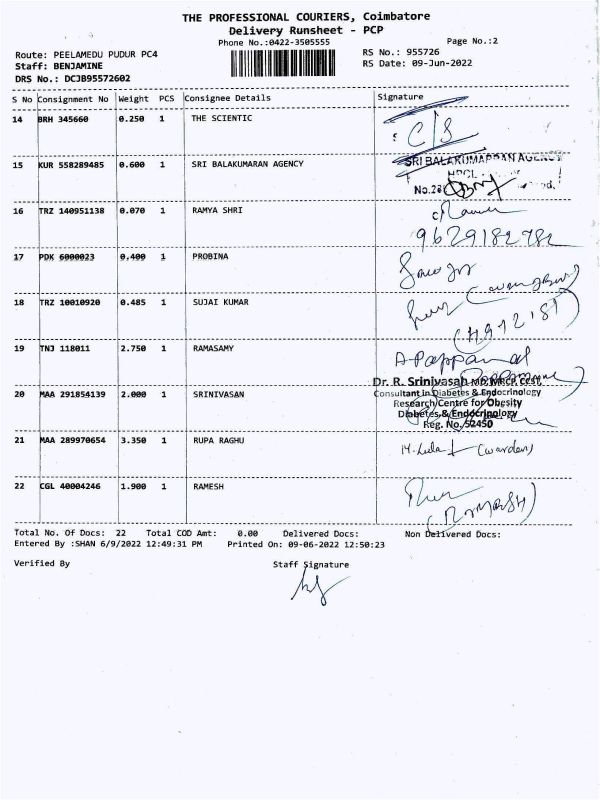 THE PROFESSIONAL COURIERS, Coimbatore
Delivery Runsheet - PCP
Phone No.:0422-3505555
Page No.:2
Route: PEELAMEDU PUDUR PC4
RS No.: 955726
Staff: BENJAMINE
RS Date: 09-Jun-2022
DRS No.: DCJB95572602
S No Consignment No Weight PCS Consignee Details Signature
14 BRH 345660 0.250 1 THE SCIENTIC
C/S
15 KUR 558289485 0.600 1 SRI BALAKUMARAN AGENCY
SRI BALAKUMARAN AGENCY
HPCL
16 TRZ 140951138 0.070 1 RAMYA SHRI
9629182782
17 PDK 6000023 0.400 1 PROBINA
18 TRZ 10010920 0.485 1 SUJAI KUMAR
19 TNJ 118011 2.750 1 RAMASAMY
A-Pappamal
Dr. R. Srinivasan MD, MRCP, CCST,
20 MAA 291854139 2.000 1 SRINIVASAN
Consultant in Diabetes & Endocrinology
Research Centre for Obesity
Diabetes & Endocrinology
Reg. No. 52450
21 MAA 289970654 3.350 1 RUPA RAGHU
(warden)
22 CGL 40004246 1.900 1 RAMESH
(RAMESH)
Total No. Of Docs: 22 Total COD Amt: 0.00 Delivered Docs: Non Delivered Docs:
Entered By :SHAN 6/9/2022 12:49:31 PM Printed On: 09-06-2022 12:50:23
Verified By Staff Signature